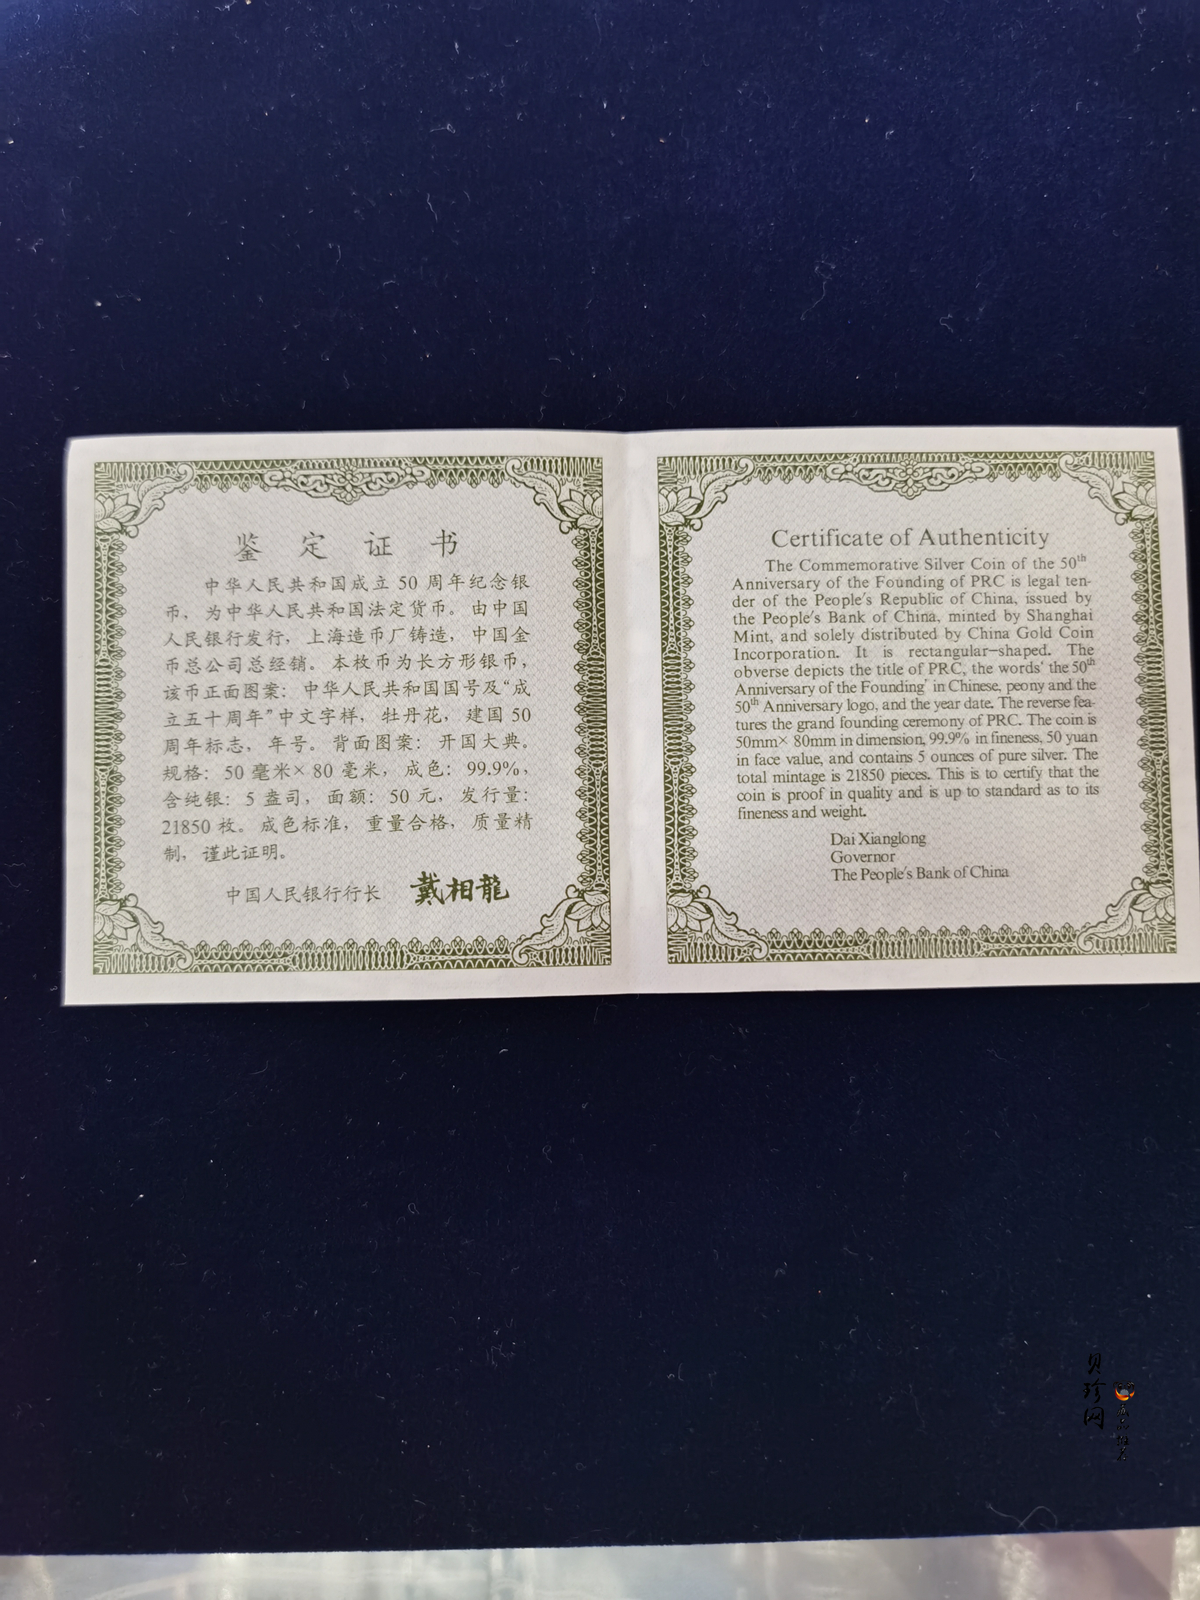 鉴定证书
中华人民共和国成立 50 周年纪念银
币，为中华人民共和国法定货币。由中国
人民银行发行，上海造币厂铸造，中国金
币总公司总经销。本枚币为长方形银币，
该币正面图案：中华人民共和国国号及“成
立五十周年”中文字样，牡丹花，建国 50
周年标志，年号。背面图案：开国大典。
规格：50 毫米×80 毫米，成色：99.9%，
含纯银：5 盎司，面额：50 元，发行量：
21850 枚。成色标准，重量合格，质量精
制，谨此证明。
中国人民银行行长 戴相龍
Certificate of Authenticity
The Commemorative Silver Coin of the 50th
Anniversary of the Founding of PRC is legal ten-
der of the People's Republic of China, issued by
the People's Bank of China, minted by Shanghai
Mint, and solely distributed by China Gold Coin
Incorporation. It is rectangular-shaped. The
obverse depicts the title of PRC, the words' the 50th
Anniversary of the Founding' in Chinese, peony and the
50th Anniversary logo, and the year date. The reverse fea-
tures the grand founding ceremony of PRC. The coin is
50mm× 80mm in dimension, 99.9% in fineness, 50 yuan
in face value, and contains 5 ounces of pure silver. The
total mintage is 21850 pieces. This is to certify that the
coin is proof in quality and is up to standard as to its
fineness and weight.
Dai Xianglong
Governor
The People's Bank of China
贝珍网